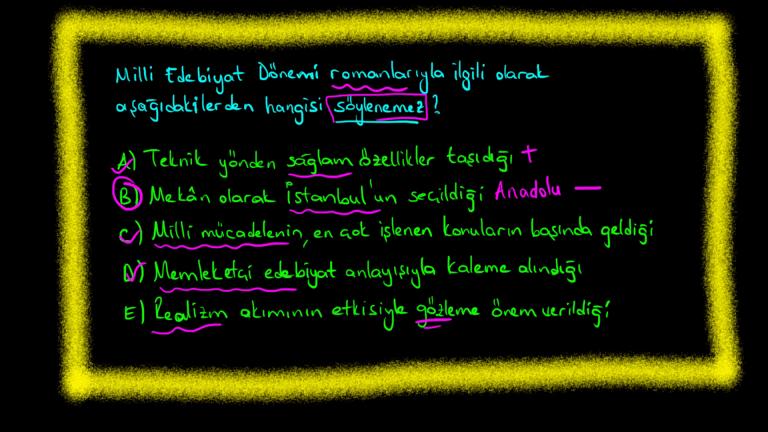 Milli Edebiyat Dönemi romanlarıyla ilgili olarak
aşağıdakilerden hangisi söylenemez?
A) Teknik yönden sağlam özellikler taşıdığı +
B) Mekân olarak İstanbul'un seçildiği Anadolu —
C) Milli mücadelenin, en çok işlenen konuların başında geldiği
D) Memleketçi edebiyat anlayışıyla kaleme alındığı
E) Realizm akımının etkisiyle gözleme önem verildiği